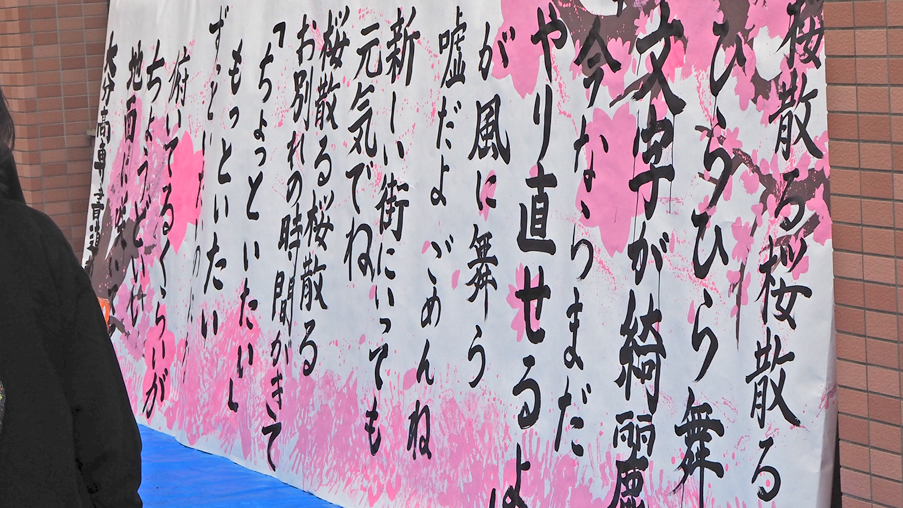 桜散る桜散る
ひらひら舞
文字が綺麗
「今ならまだ
やり直せるよ
が風に舞う
嘘だよ ごめんね
新しい街にいっても
元気でね
桜散る桜散る
お別れの時間がきて
「ちょっといたい
もっといたいし
ずっといたい
俯いてるくらいが
ちょうどいい
地面に咲い
大分高専 書道